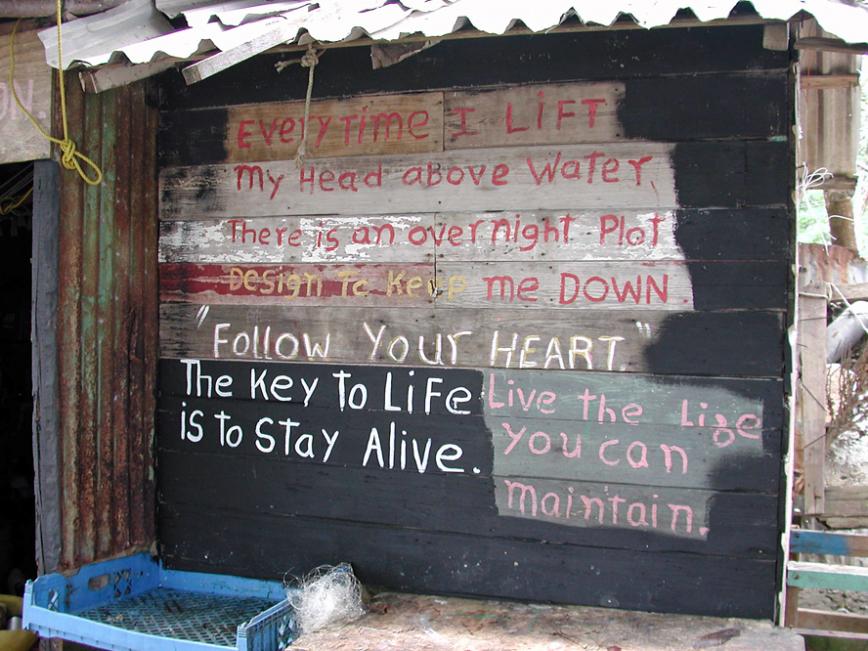 EVerYTime I LiFT
My Head above Water,
There is an overnight Plot
Design To Keep me DOWN.
"Follow Your HEART."
The Key To LiFe
is to Stay Alive.
Live the Lige
You can
maintain.
ON.